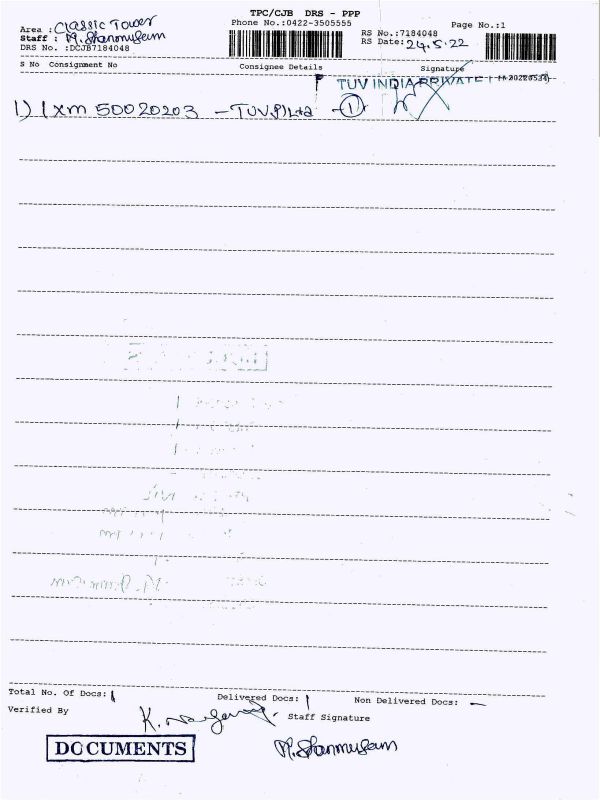 TPC/CJB DRS - PPP
Phone No.:0422-3505555
Page No.:1
Area : Classic Tower
Staff : M. Shanmugam
DRS No. :DCJB7184048
RS No.:7184048
RS Date: 24.5.22
S No Consignment No
Consignee Details
Signature
TUV INDIA PRIVATE
1) 1xm 50020203 - TUV (P) Ltd ①
Total No. Of Docs: 1
Delivered Docs: 1
Non Delivered Docs: -
Verified By
Staff Signature
M. Shanmugam
DOCUMENTS